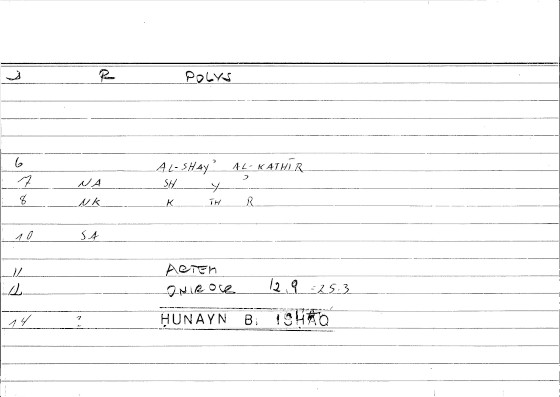 R POLVS
6 AL-SHAYʾ AL-KATHĪR
7 NA SH Y ʾ
8 NK K TH R
10 SA
11 ARTEM
12 ONIROCR 12.9 =25.3
14 ? ḤUNAYN B. ISḤĀQ